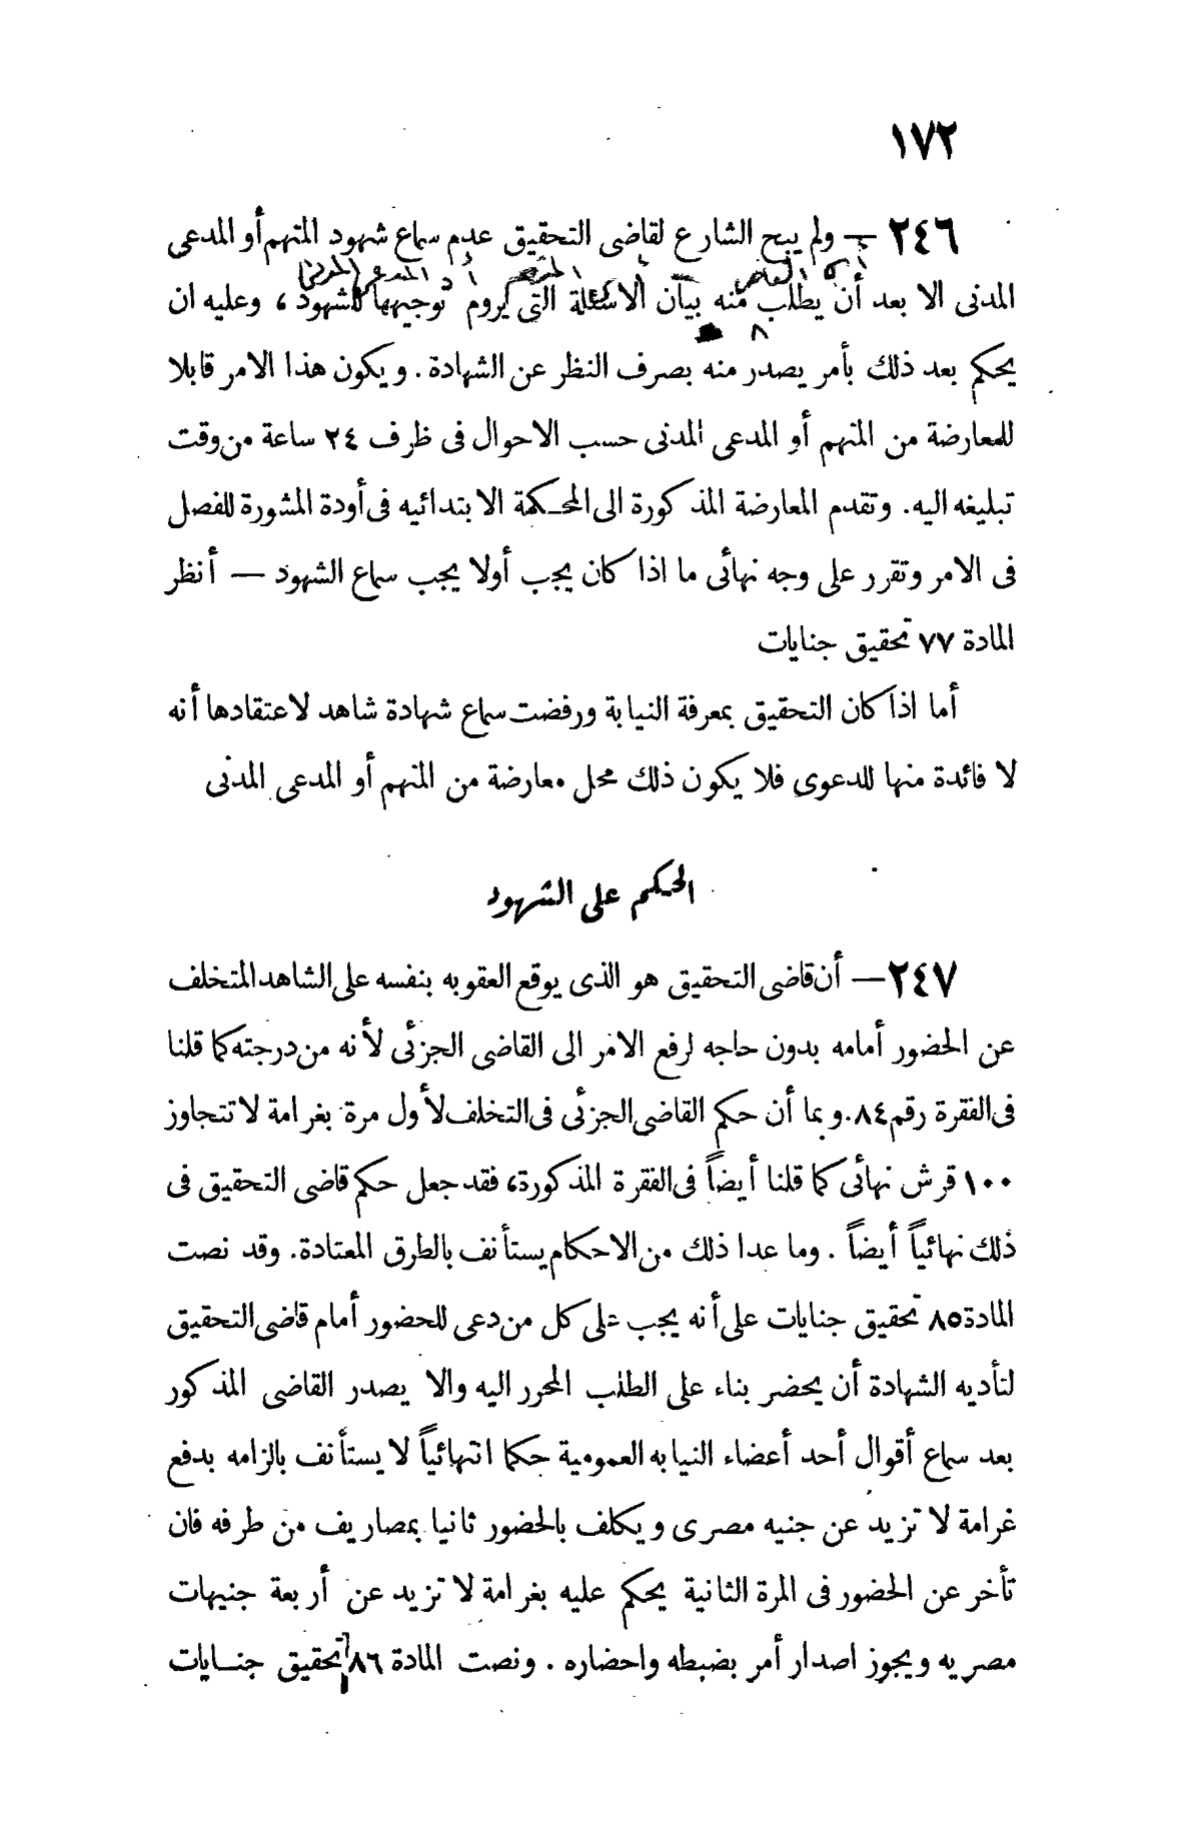 ١٧٢
٢٤٦ — ولم يبح الشارع لقاضى التحقيق عدم سماع شهود المتهم أو المدعى
المدنى الا بعد أن يطلب منه بيان الاسئلة التى يروم توجيهها للشهود ، وعليه ان
يحكم بعد ذلك بأمر يصدر منه بصرف النظر عن الشهادة . ويكون هذا الامر قابلا
للمعارضة من المتهم أو المدعى المدنى حسب الاحوال فى ظرف ٢٤ ساعة من وقت
تبليغه اليه . وتقدم المعارضة المذكورة الى المحكمة الابتدائيه فى أودة المشورة للفصل
فى الامر وتقرر على وجه نهائى ما اذا كان يجب أولا يجب سماع الشهود — أنظر
المادة ٧٧ تحقيق جنايات
أما اذا كان التحقيق بمعرفة النيابة ورفضت سماع شهادة شاهد لاعتقادها أنه
لا فائدة منها للدعوى فلا يكون ذلك محل معارضة من المتهم أو المدعى المدنى
الحكم على الشهود
٢٤٧ — أن قاضى التحقيق هو الذى يوقع العقوبه بنفسه على الشاهد المتخلف
عن الحضور أمامه بدون حاجه لرفع الامر الى القاضى الجزئى لأنه من درجته كما قلنا
فى الفقرة رقم ٨٤ . وبما أن حكم القاضى الجزئى فى التخلف لأول مرة بغرامة لا تتجاوز
١٠٠ قرش نهائى كما قلنا أيضاً فى الفقرة المذكورة ، فقد جعل حكم قاضى التحقيق فى
ذلك نهائياً أيضاً . وما عدا ذلك من الاحكام يستأنف بالطرق المعتادة . وقد نصت
المادة ٨٥ تحقيق جنايات على أنه يجب على كل من دعى للحضور أمام قاضى التحقيق
لتأديه الشهادة أن يحضر بناء على الطلب المحرر اليه والا يصدر القاضى المذكور
بعد سماع أقوال أحد أعضاء النيابه العمومية حكما انتهائياً لا يستأنف بالزامه بدفع
غرامة لا تزيد عن جنيه مصرى ويكلف بالحضور ثانيا بمصاريف من طرفه فان
تأخر عن الحضور فى المرة الثانية يحكم عليه بغرامة لا تزيد عن أربعة جنيهات
مصريه ويجوز اصدار أمر بضبطه واحضاره . ونصت المادة ٨٦ تحقيق جنايات